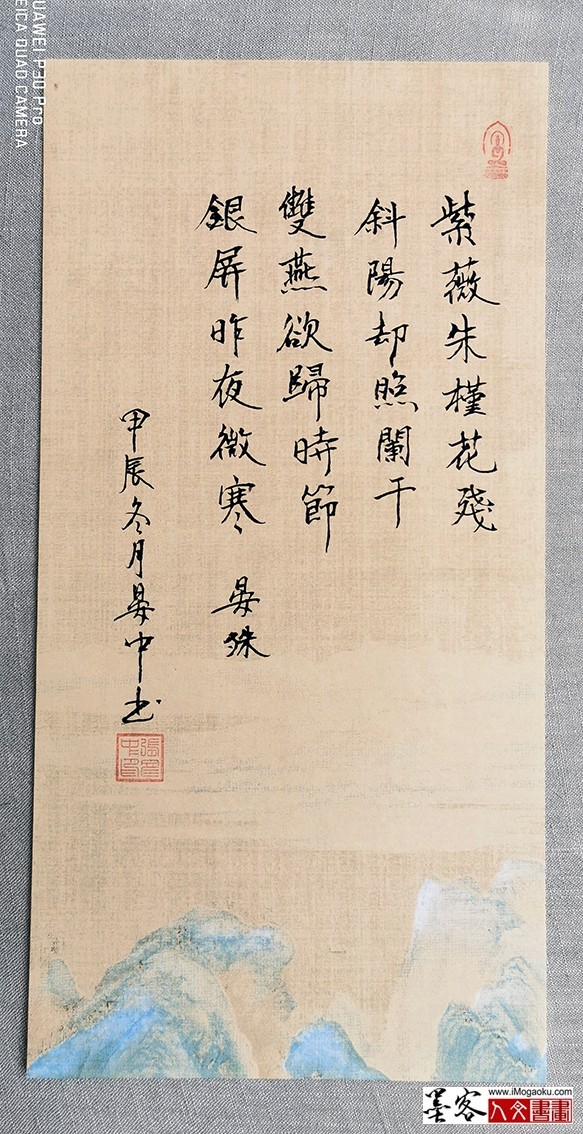 紫薇朱槿花殘
斜陽却照闌干
雙燕欲歸時節
銀屏昨夜微寒 晏殊
甲辰冬月晏中书
HUAWEI P30 Pro
LEICA QUAD CAMERA
www.iMogaoku.com
墨客 人文書畫